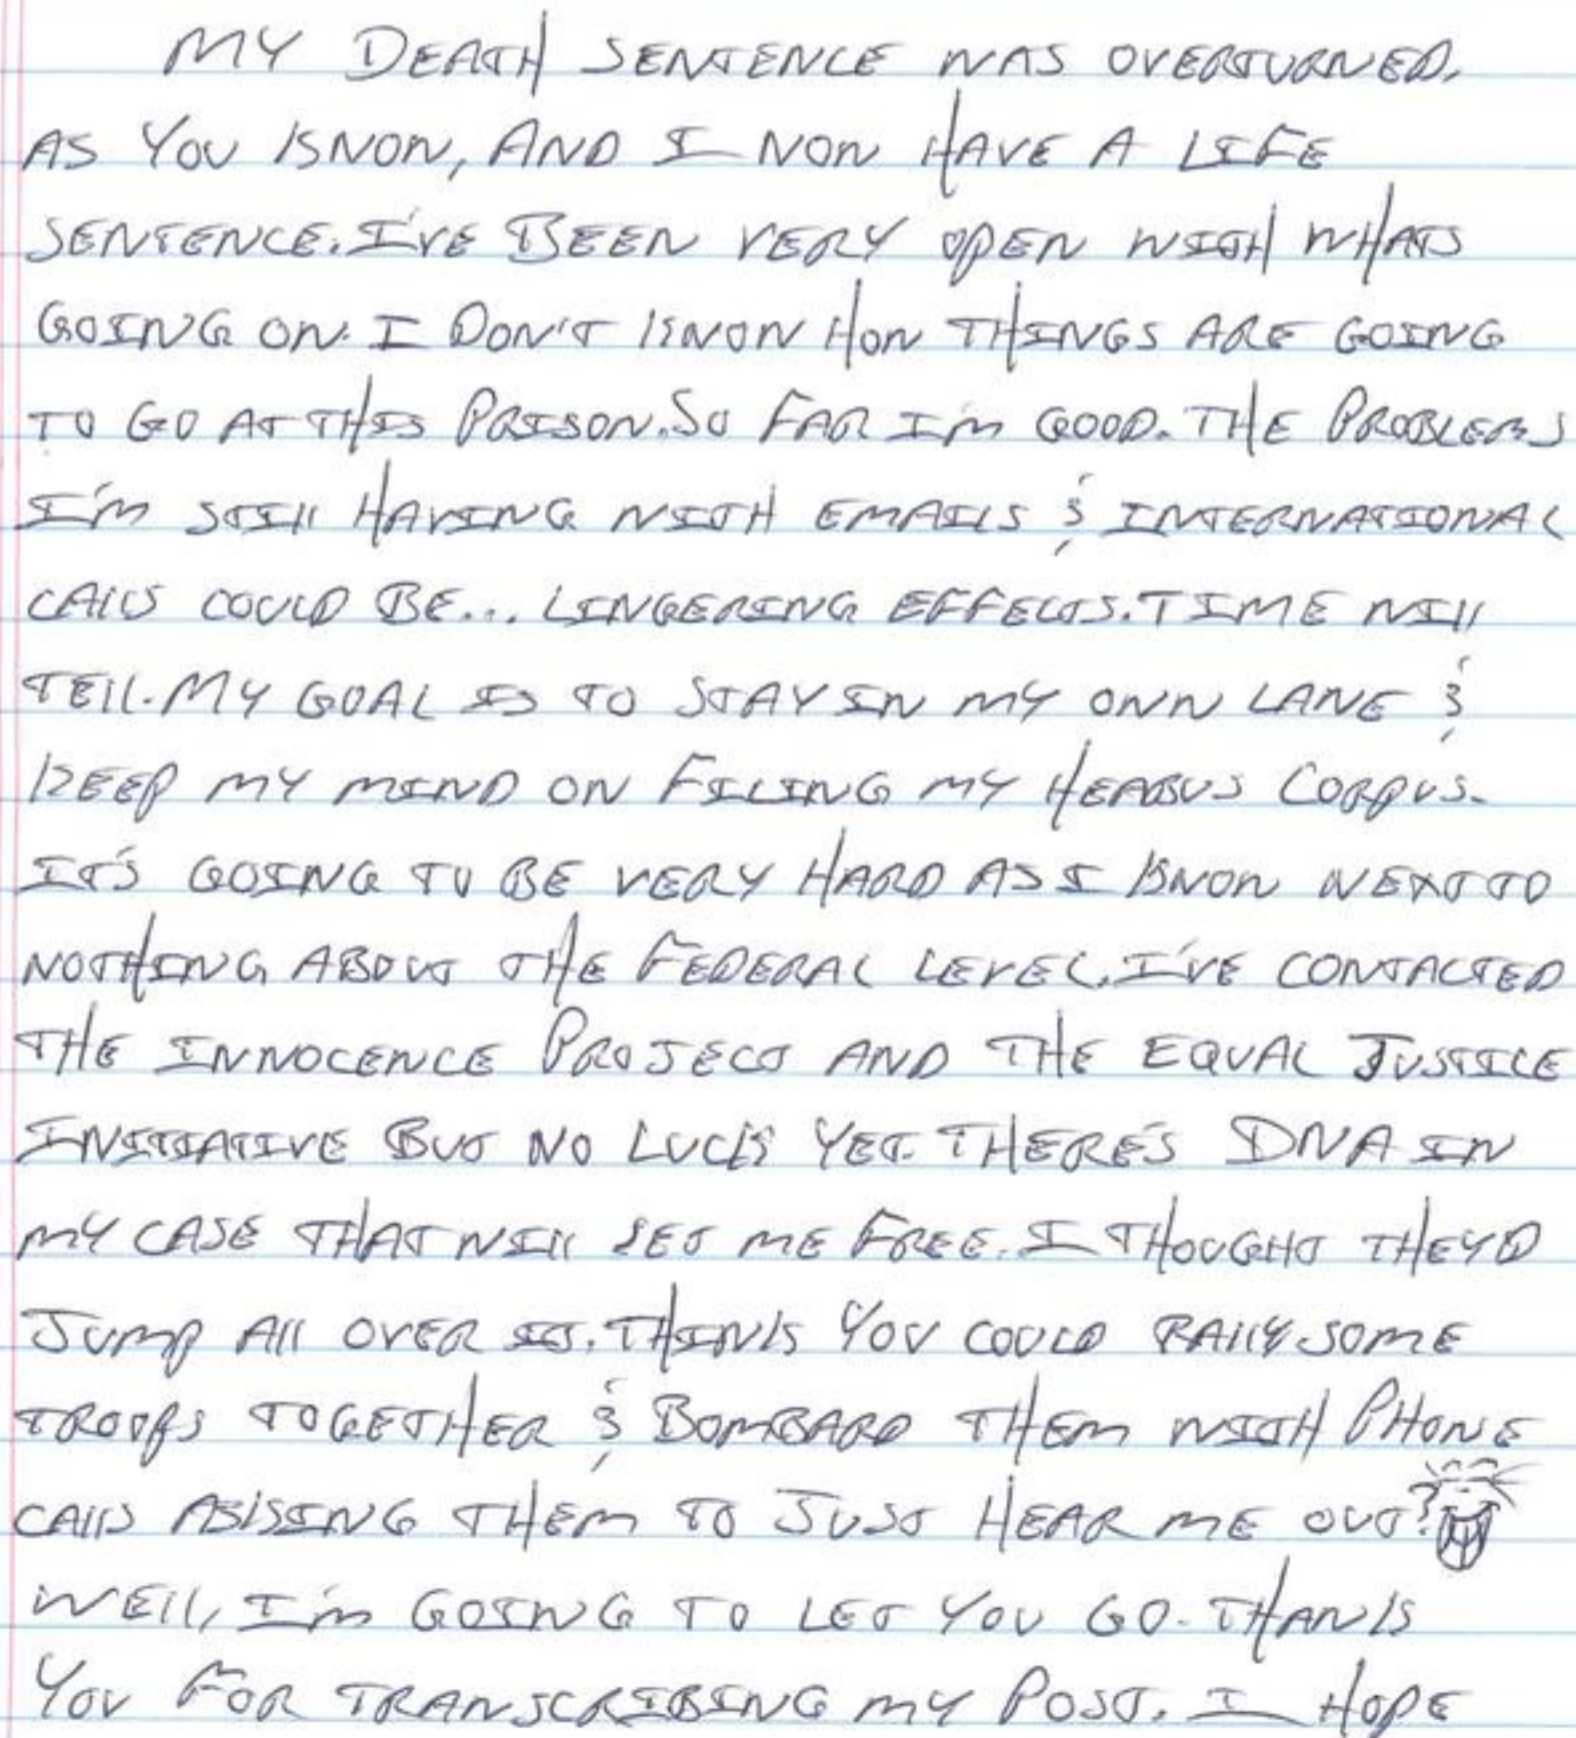 MY DEATH SENTENCE WAS OVERTURNED.
AS YOU KNOW, AND I NOW HAVE A LIFE
SENTENCE. I'VE BEEN VERY OPEN WITH WHATS
GOING ON. I DON'T KNOW HOW THINGS ARE GOING
TO GO AT THIS PRISON. SO FAR I'M GOOD. THE PROBLEMS
I'M STILL HAVING WITH EMAILS & INTERNATIONAL
CALLS COULD BE... LINGERING EFFECTS. TIME WILL
TELL. MY GOAL IS TO STAY IN MY OWN LANE &
KEEP MY MIND ON FILING MY HEABUS CORPUS.
IT'S GOING TO BE VERY HARD AS I KNOW NEXT TO
NOTHING ABOUT THE FEDERAL LEVEL. I'VE CONTACTED
THE INNOCENCE PROJECT AND THE EQUAL JUSTICE
INITIATIVE BUT NO LUCK YET. THERE'S DNA IN
MY CASE THAT WILL SET ME FREE. I THOUGHT THEY'D
JUMP ALL OVER IT. THINK YOU COULD RALLY SOME
TROOPS TOGETHER & BOMBARD THEM WITH PHONE
CALLS ASKING THEM TO JUST HEAR ME OUT?
WELL, I'M GOING TO LET YOU GO. THANK
YOU FOR TRANSCRIBING MY POST. I HOPE